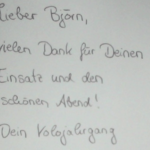 Lieber Björn,
vielen Dank für Deinen
Einsatz und den
schönen Abend!
Dein Volojahrgang